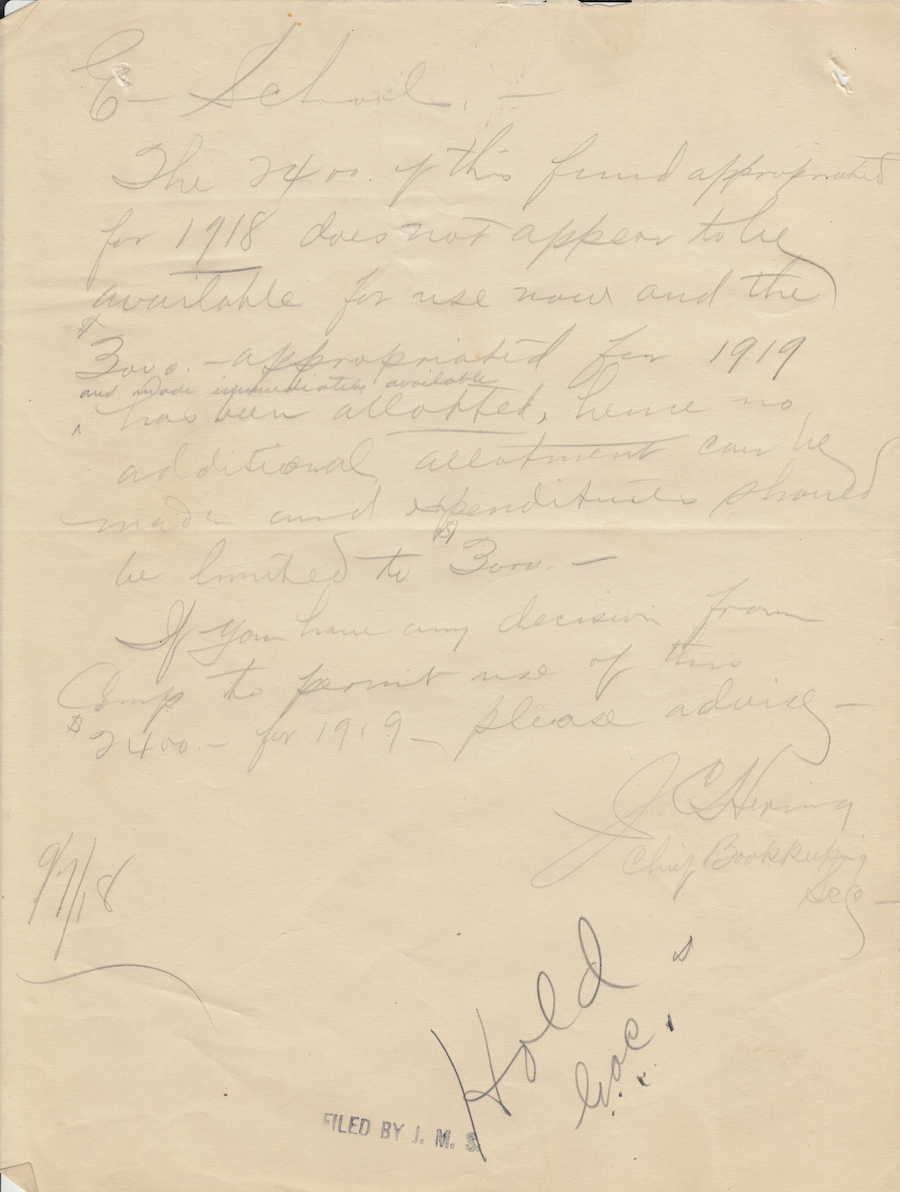 E — School. —
The 2400. of this fund appropriated
for 1918 does not appear to be
available for use now and the
$3000. — appropriated for 1919
and made immediately available
^ has been allotted, hence no
additional allotment can be
made and expenditures should
be limited to $3000. —
If you have any decision from
Comp to permit use of this
$2400. — for 1919 — please advise —
J. C. Hering
Chief Bookkeeping
Sec —
9/7/18
Hold
FILED BY J. M. S.